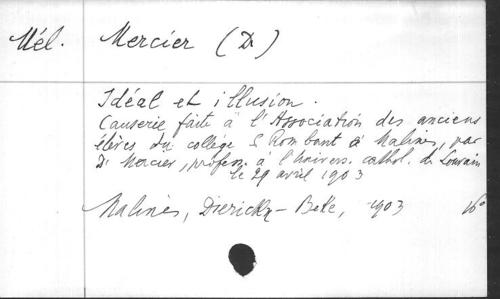 Mél. Mercier (D)
Idéal et illusion.
Causerie faite à l'Association des anciens
élèves du collège S Rombaut à Malines, par
D. Mercier, profess. à l'Univers. cathol. de Louvain
le 29 avril 1903
Malines, Dierickx-Beke, 1903 16°